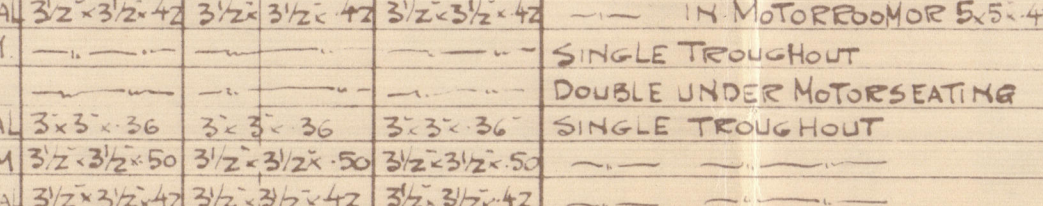 AL 3½"×3½"×.42 3½"×3½"×.42 3½"×3½"×.42 —"— IN MOTORROOMOR 5×5×.4
—"— —"— —"— SINGLE TROUGHOUT
—"— —"— —"— DOUBLE UNDER MOTORSEATING
AL 3"×3"×.36 3"×3"×.36 3"×3"×.36 SINGLE TROUGHOUT
M 3½"×3½"×.50 3½"×3½"×.50 3½"×3½"×.50 —"— —"—
AL 3½"×3½"×.42 3½"×3½"×.42 3½"×3½"×.42 —"— —"—